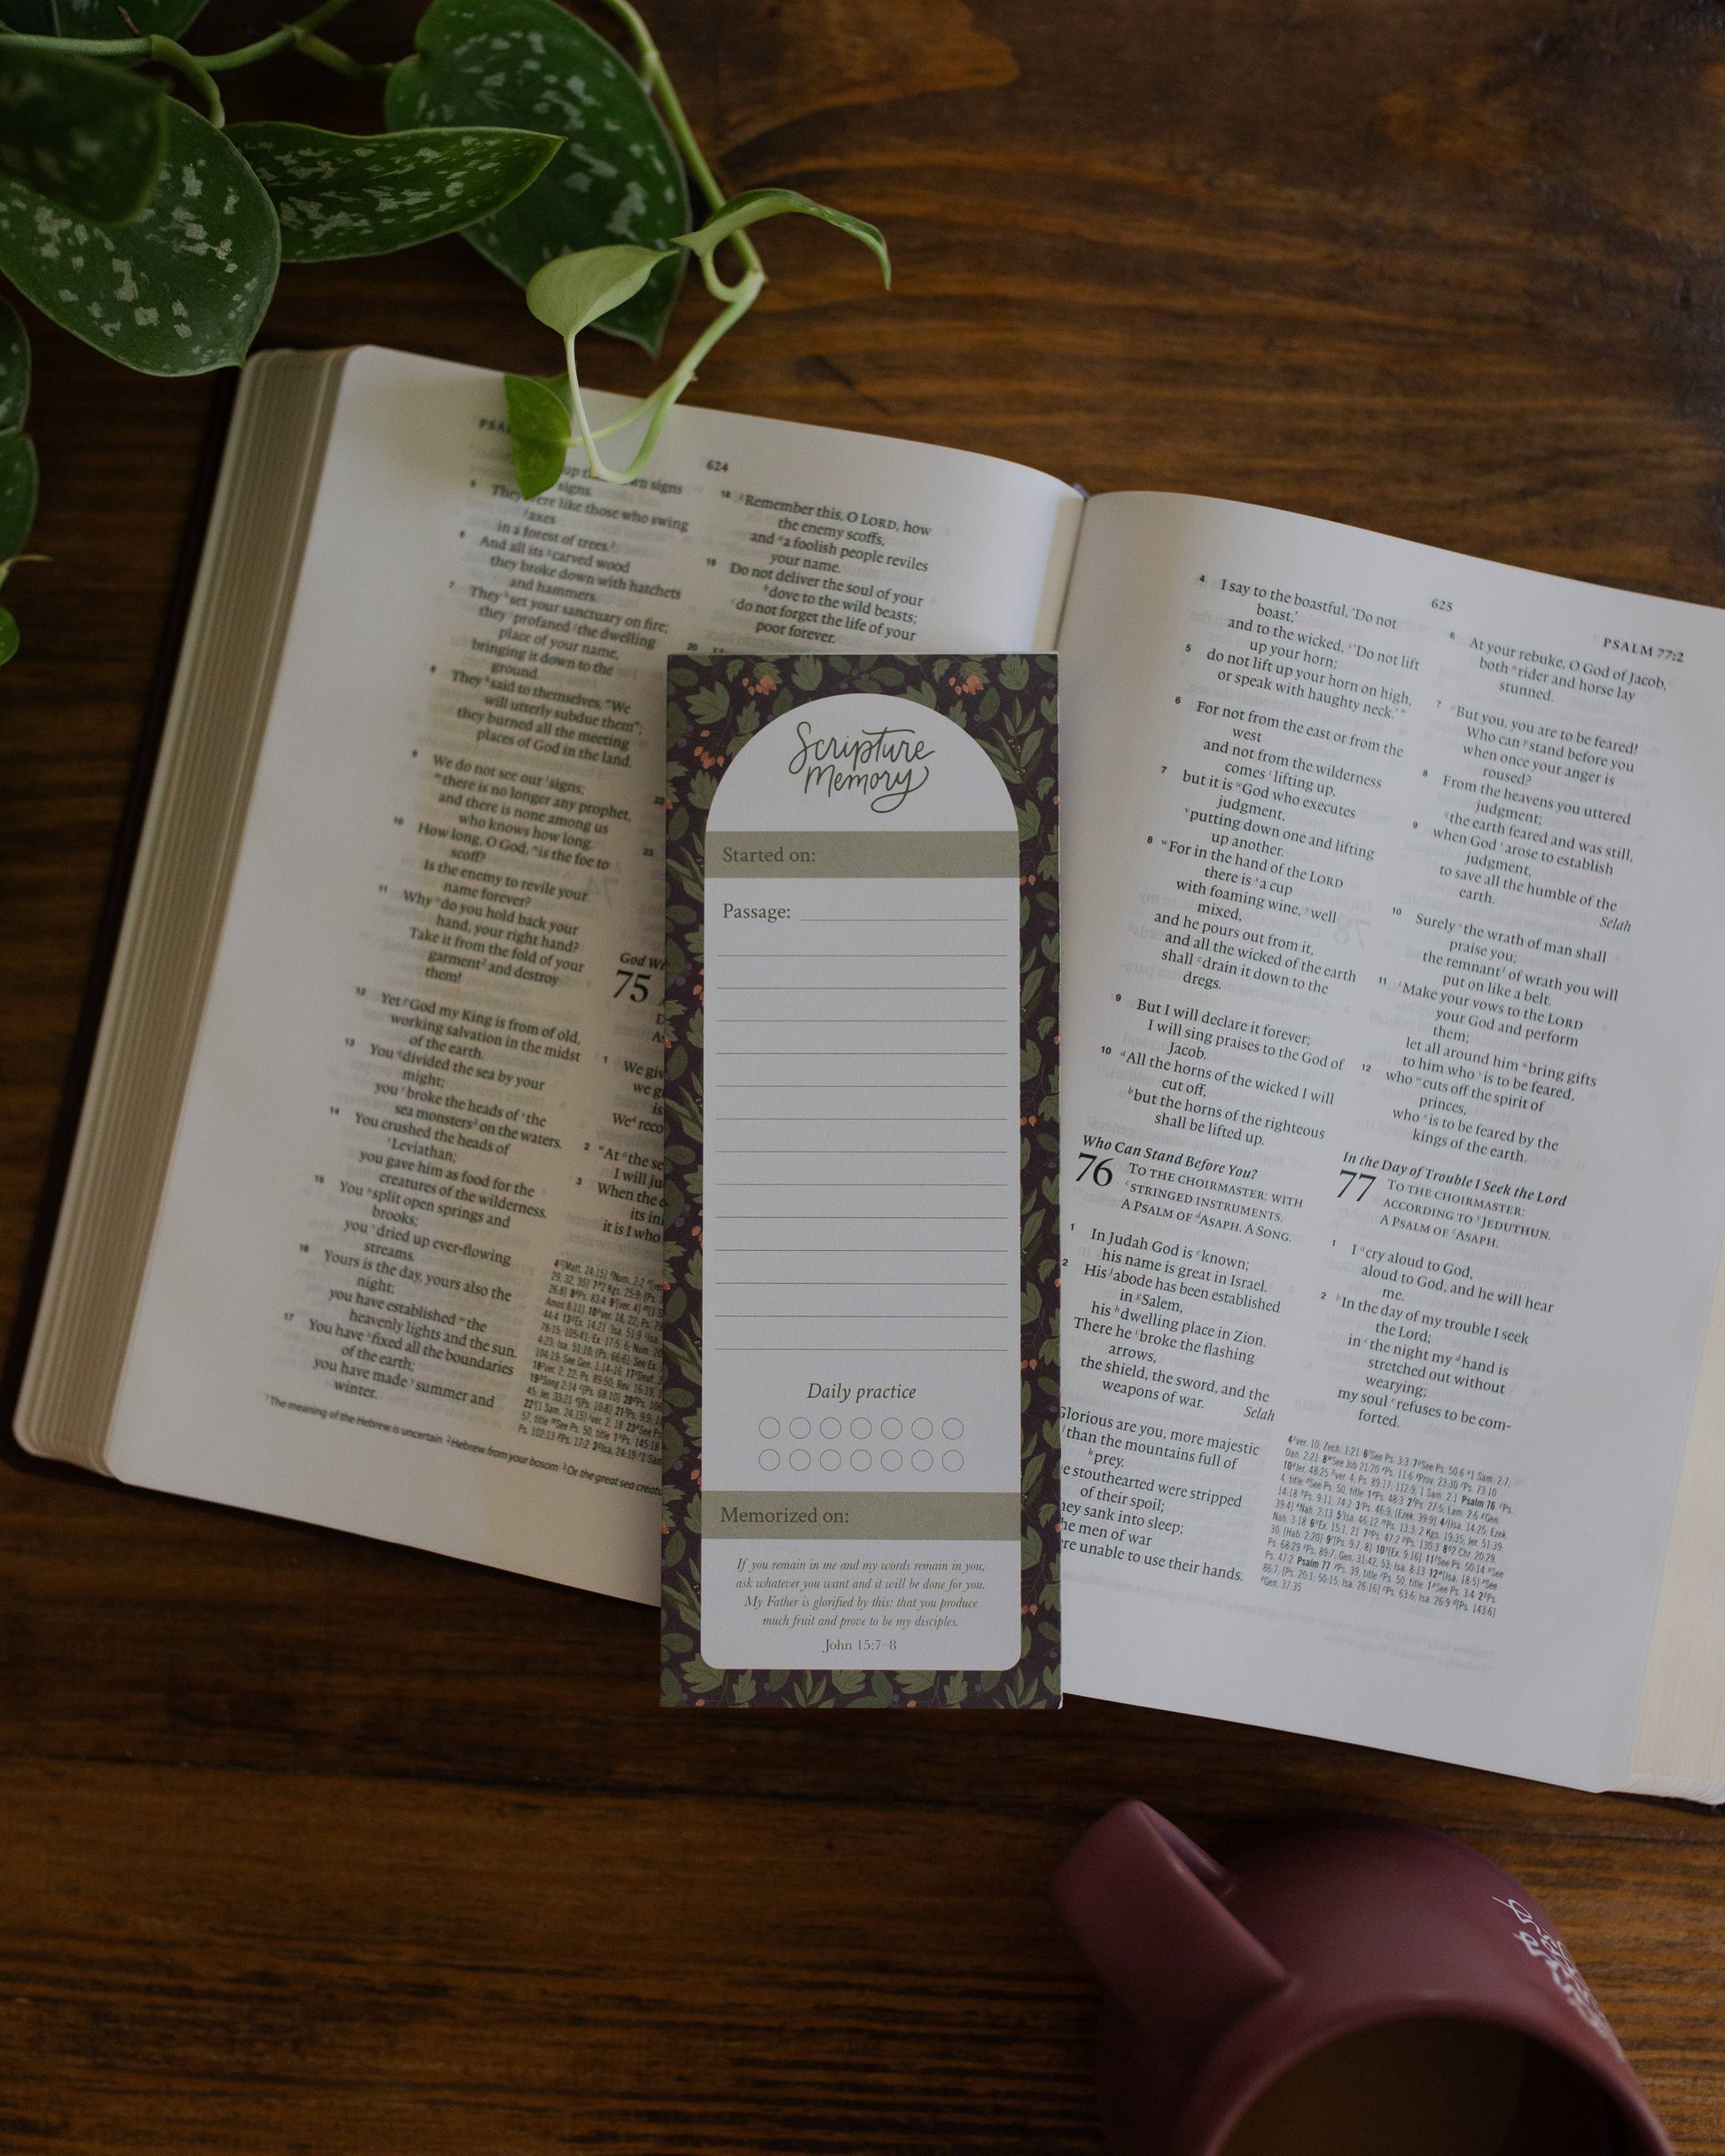 624
up
signs
signs.
5 They were like those who swing
axes
in a forest of trees.
6 And all its carved wood
they broke down with hatchets
and hammers.
7 They set your sanctuary on fire;
they profaned the dwelling
place of your name,
bringing it down to the
ground.
8 They said to themselves, “We
will utterly subdue them”;
they burned all the meeting
places of God in the land.
9 We do not see our signs;
there is no longer any prophet,
and there is none among us
who knows how long.
10 How long, O God, is the foe to
scoff?
Is the enemy to revile your
name forever?
11 Why do you hold back your
hand, your right hand?
Take it from the fold of your
garment² and destroy
them!
12 Yet God my King is from of old,
working salvation in the midst
of the earth.
13 You divided the sea by your
might;
you broke the heads of the
sea monsters³ on the waters.
14 You crushed the heads of
Leviathan;
you gave him as food for the
creatures of the wilderness.
15 You split open springs and
brooks;
you dried up ever-flowing
streams.
16 Yours is the day, yours also the
night;
you have established the
heavenly lights and the sun.
17 You have fixed all the boundaries
of the earth;
you have made summer and
winter.
18 Remember this, O LORD, how
the enemy scoffs,
and a foolish people reviles
your name.
19 Do not deliver the soul of your
dove to the wild beasts;
do not forget the life of your
poor forever.
20
22
23
God
75
1 We
we
is
We
2 “At the
I will
3 When the
its
it is I who
¹The meaning of the Hebrew is uncertain ²Hebrew from your bosom ³Or the great sea
Scripture
Memory
Started on:
Passage:
Daily practice
Memorized on:
If you remain in me and my words remain in you,
ask whatever you want and it will be done for you.
My Father is glorified by this: that you produce
much fruit and prove to be my disciples.
John 15:7–8
625
PSALM 77:2
4 I say to the boastful, ‘Do not
boast,’
and to the wicked, ‘Do not lift
up your horn;
5 do not lift up your horn on high,
or speak with haughty neck.’”
6 For not from the east or from the
west
and not from the wilderness
comes lifting up,
7 but it is God who executes
judgment,
putting down one and lifting
up another.
8 For in the hand of the LORD
there is a cup
with foaming wine, well
mixed,
and he pours out from it,
and all the wicked of the earth
shall drain it down to the
dregs.
9 But I will declare it forever;
I will sing praises to the God of
Jacob.
10 All the horns of the wicked I will
cut off,
but the horns of the righteous
shall be lifted up.
Who Can Stand Before You?
76 TO THE CHOIRMASTER: WITH
STRINGED INSTRUMENTS.
A PSALM OF ASAPH. A SONG.
1 In Judah God is known;
his name is great in Israel.
2 His abode has been established
in Salem,
his dwelling place in Zion.
There he broke the flashing
arrows,
the shield, the sword, and the
weapons of war. Selah
Glorious are you, more majestic
than the mountains full of
prey.
stouthearted were stripped
of their spoil;
sank into sleep;
men of war
unable to use their hands.
6 At your rebuke, O God of Jacob,
both rider and horse lay
stunned.
7 But you, you are to be feared!
Who can stand before you
when once your anger is
roused?
8 From the heavens you uttered
judgment;
the earth feared and was still,
9 when God arose to establish
judgment,
to save all the humble of the
earth. Selah
10 Surely the wrath of man shall
praise you;
the remnant of wrath you will
put on like a belt.
11 Make your vows to the LORD
your God and perform
them;
let all around him bring gifts
to him who is to be feared,
12 who cuts off the spirit of
princes,
who is to be feared by the
kings of the earth.
In the Day of Trouble I Seek the Lord
77 TO THE CHOIRMASTER:
ACCORDING TO JEDUTHUN.
A PSALM OF ASAPH.
1 I cry aloud to God,
aloud to God, and he will hear
me.
2 In the day of my trouble I seek
the Lord;
in the night my hand is
stretched out without
wearying;
my soul refuses to be com-
forted.